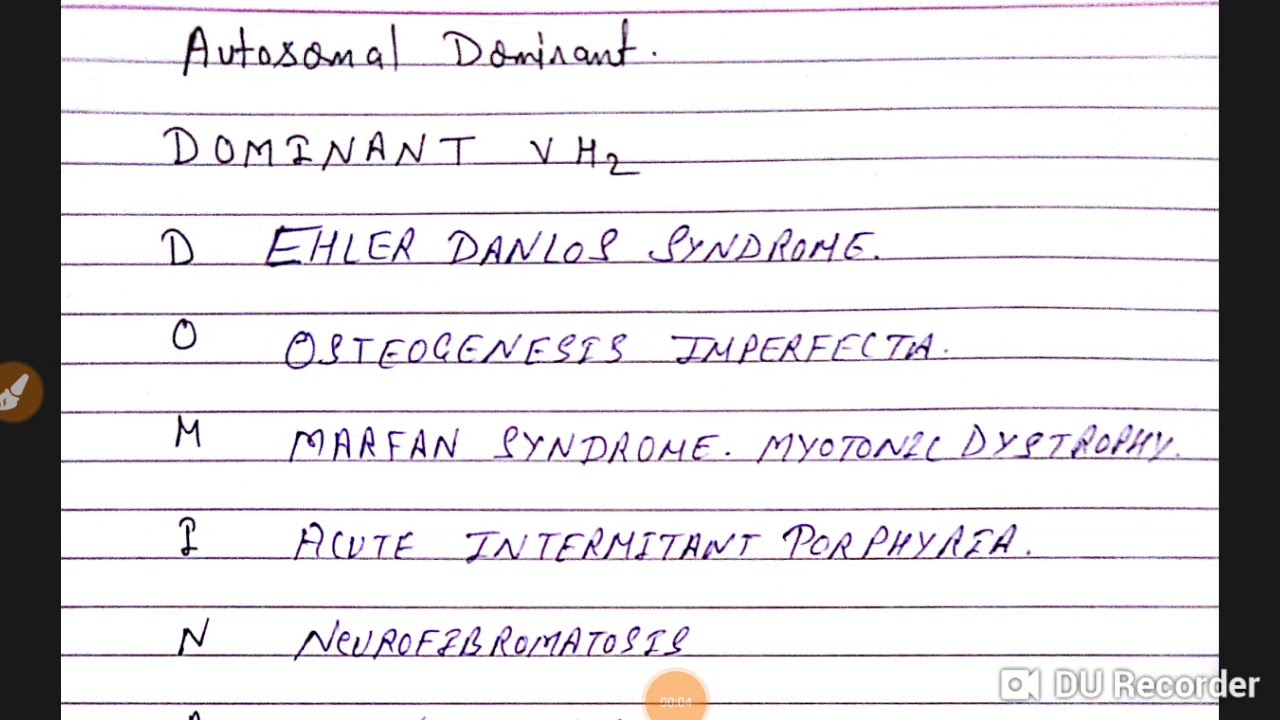 Autosomal Dominant.
DOMINANT VH2
D EHLER DANLOS SYNDROME.
O OSTEOGENESIS IMPERFECTA.
M MARFAN SYNDROME. MYOTONIC DYSTROPHY.
I ACUTE INTERMITANT PORPHYRIA.
N NEUROFIBROMATOSIS
00:04
DU Recorder